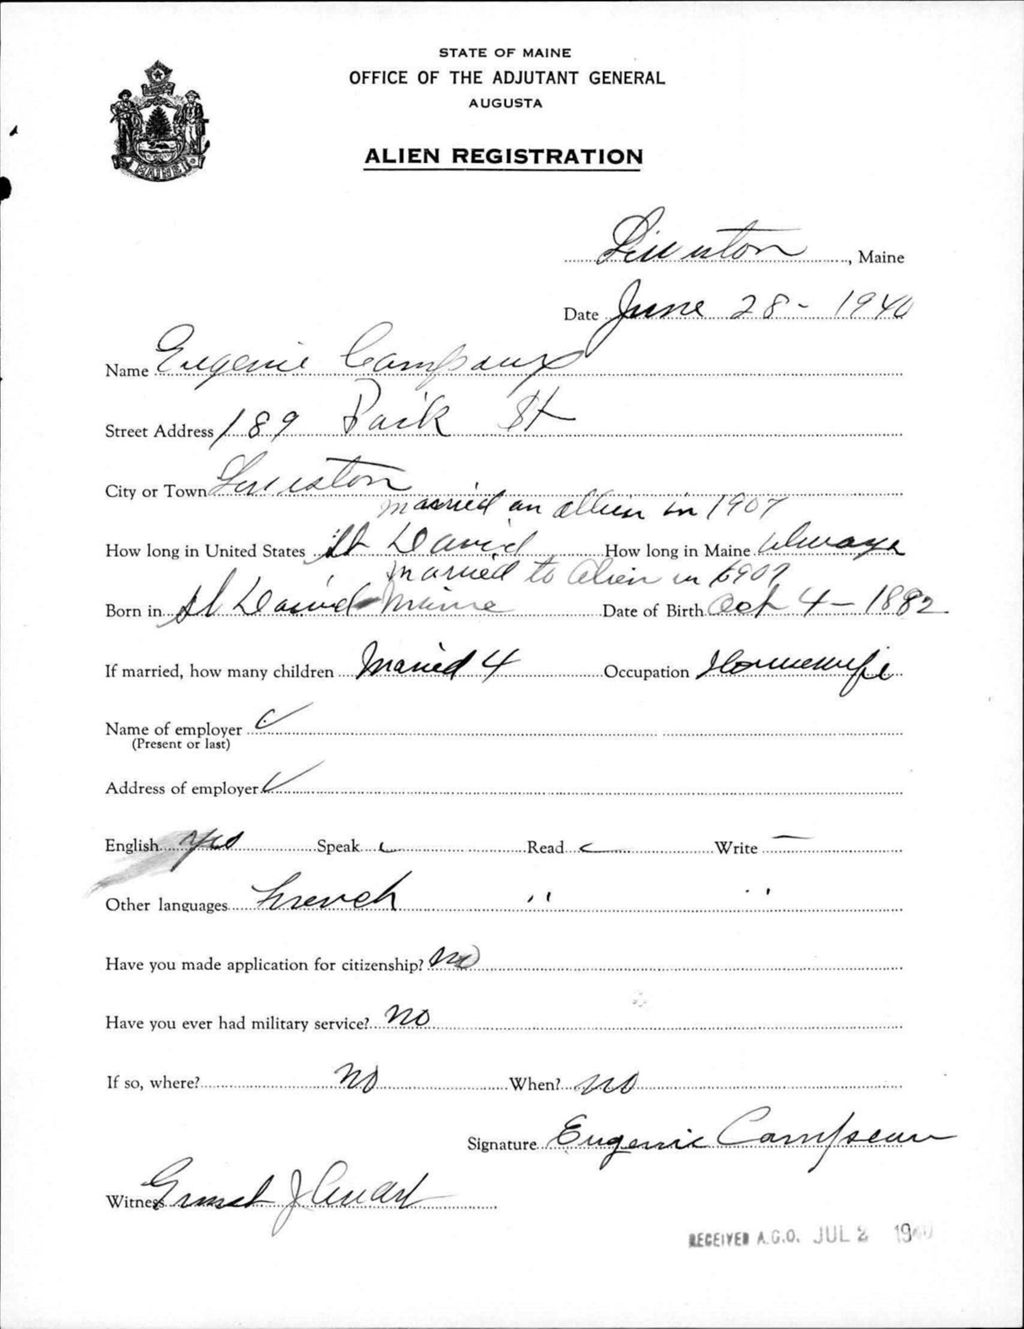 STATE OF MAINE
OFFICE OF THE ADJUTANT GENERAL
AUGUSTA
MAINE
ALIEN REGISTRATION
Lewiston, Maine
Date June 28 - 1940
Name Eugenie Campeau
Street Address 189 Park St
City or Town Lewiston
married an alien in 1907
How long in United States St David How long in Maine always
married to alien in 1907
Born in St David - Maine Date of Birth Oct 4 - 1882
If married, how many children Married 4 Occupation Housewife
Name of employer
(Present or last)
Address of employer
English yes Speak Read Write
Other languages French " "
Have you made application for citizenship? No
Have you ever had military service? No
If so, where? No When? no
Signature Eugenie Campeau
Witness Ernest J
RECEIVED A.G.O. JUL 2 1940